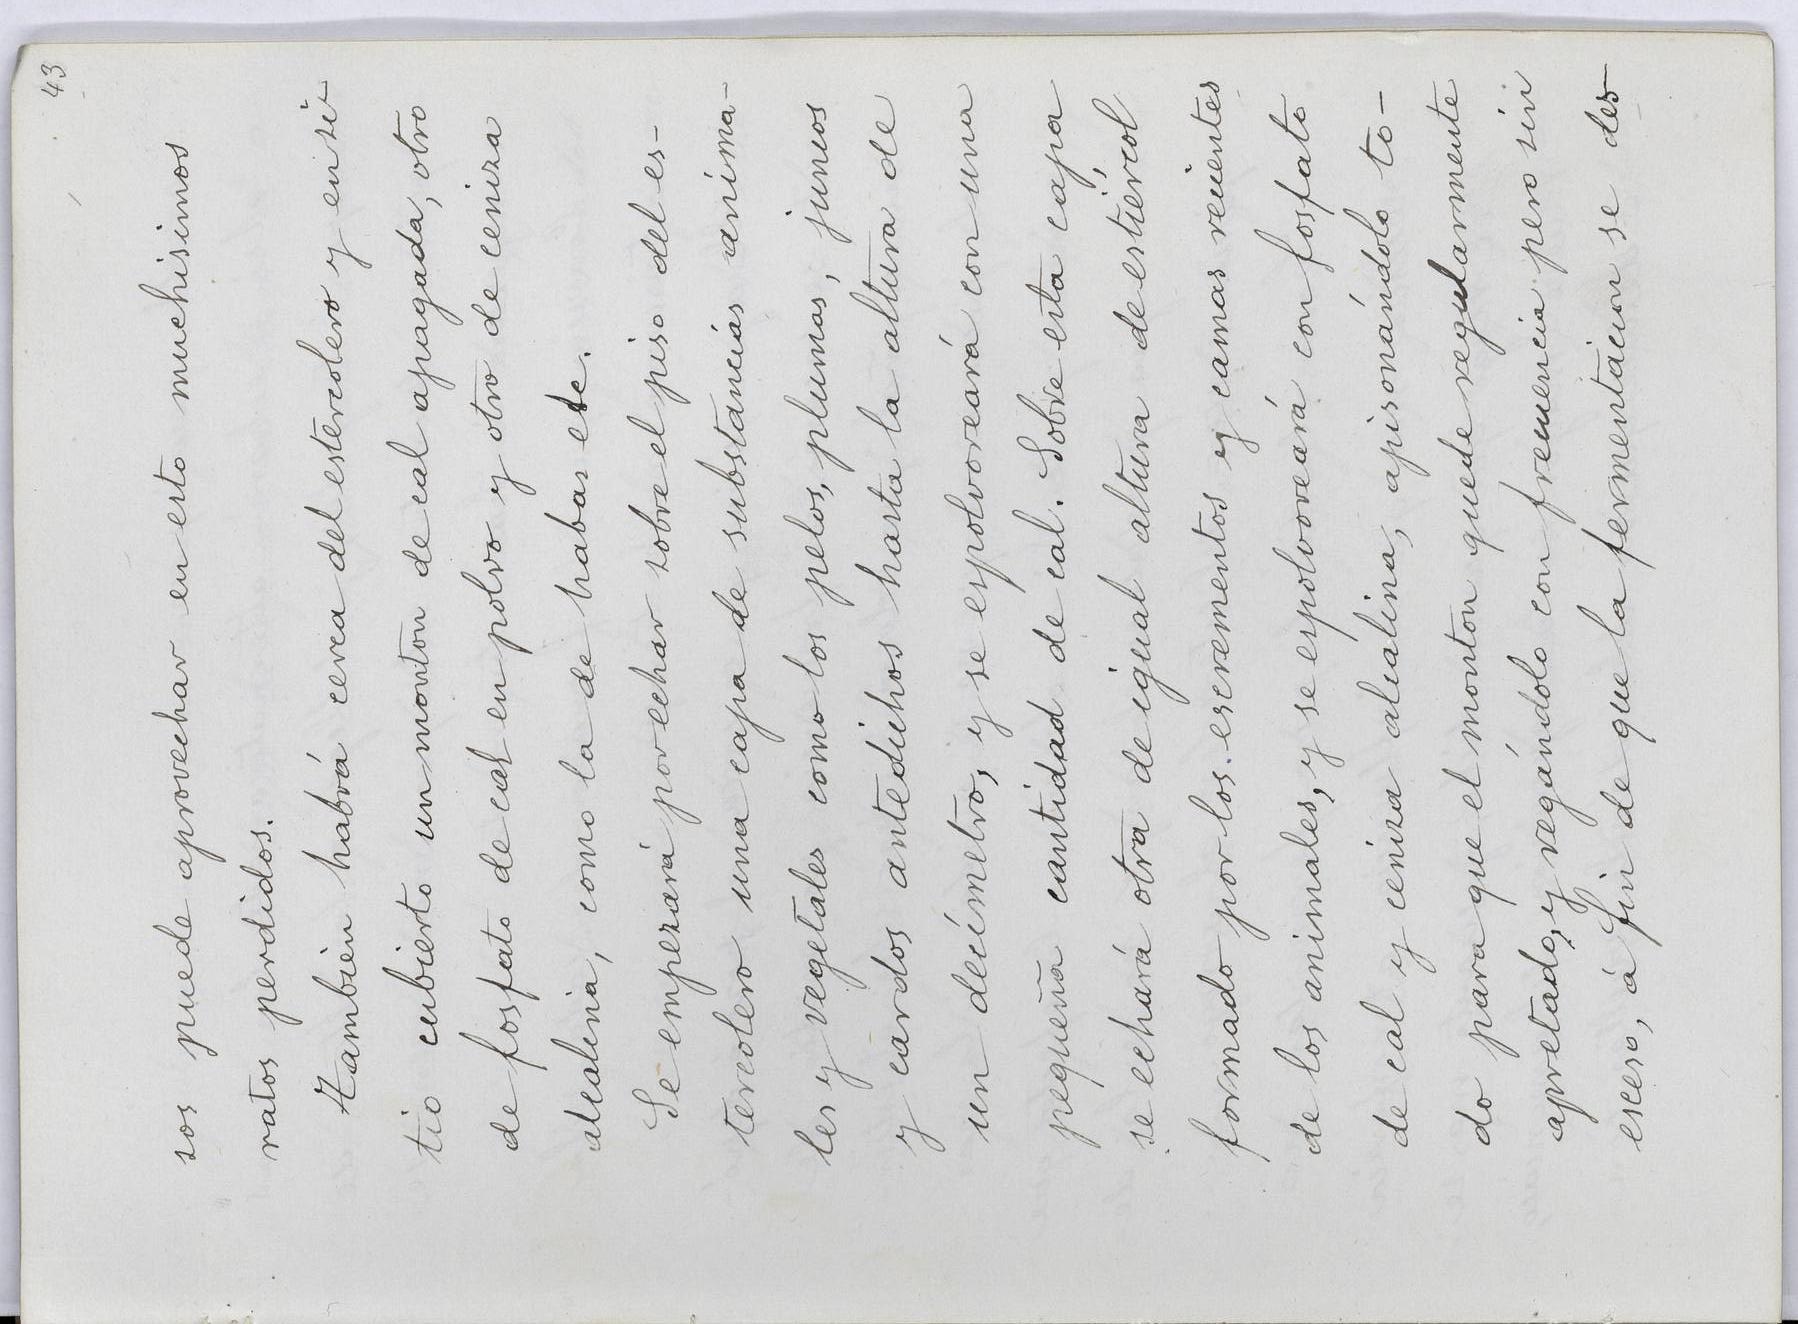 43
sos puede aprovechar en esto muchisimos
ratos perdidos.
También habrá cerca del estercolero y en si-
tio cubierto un montón de cal apagada, otro
de fosfato de cal en polvo y otro de ceniza
alcalina, como la de habas etc.
Se empezará por echar sobre el piso del es-
tercolero una capa de substancias anima-
les y vegetales como los pelos, plumas, juncos
y cardos antedichos hasta la altura de
un decímetro, y se espolvoreará con una
pequeña cantidad de cal. Sobre esta capa,
se echará otra de igual altura de estiércol
formado por los escrementos y camas recientes
de los animales, y se espolvoreará con fosfato
de cal y ceniza alcalina, apisonándolo to-
do para que el montón quede regularmente
apretado, y regándolo con frecuencia pero sin
esceso, á fin de que la fermentacion se des-